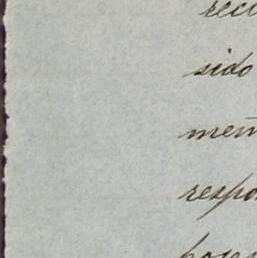 reci
sido
men
respo